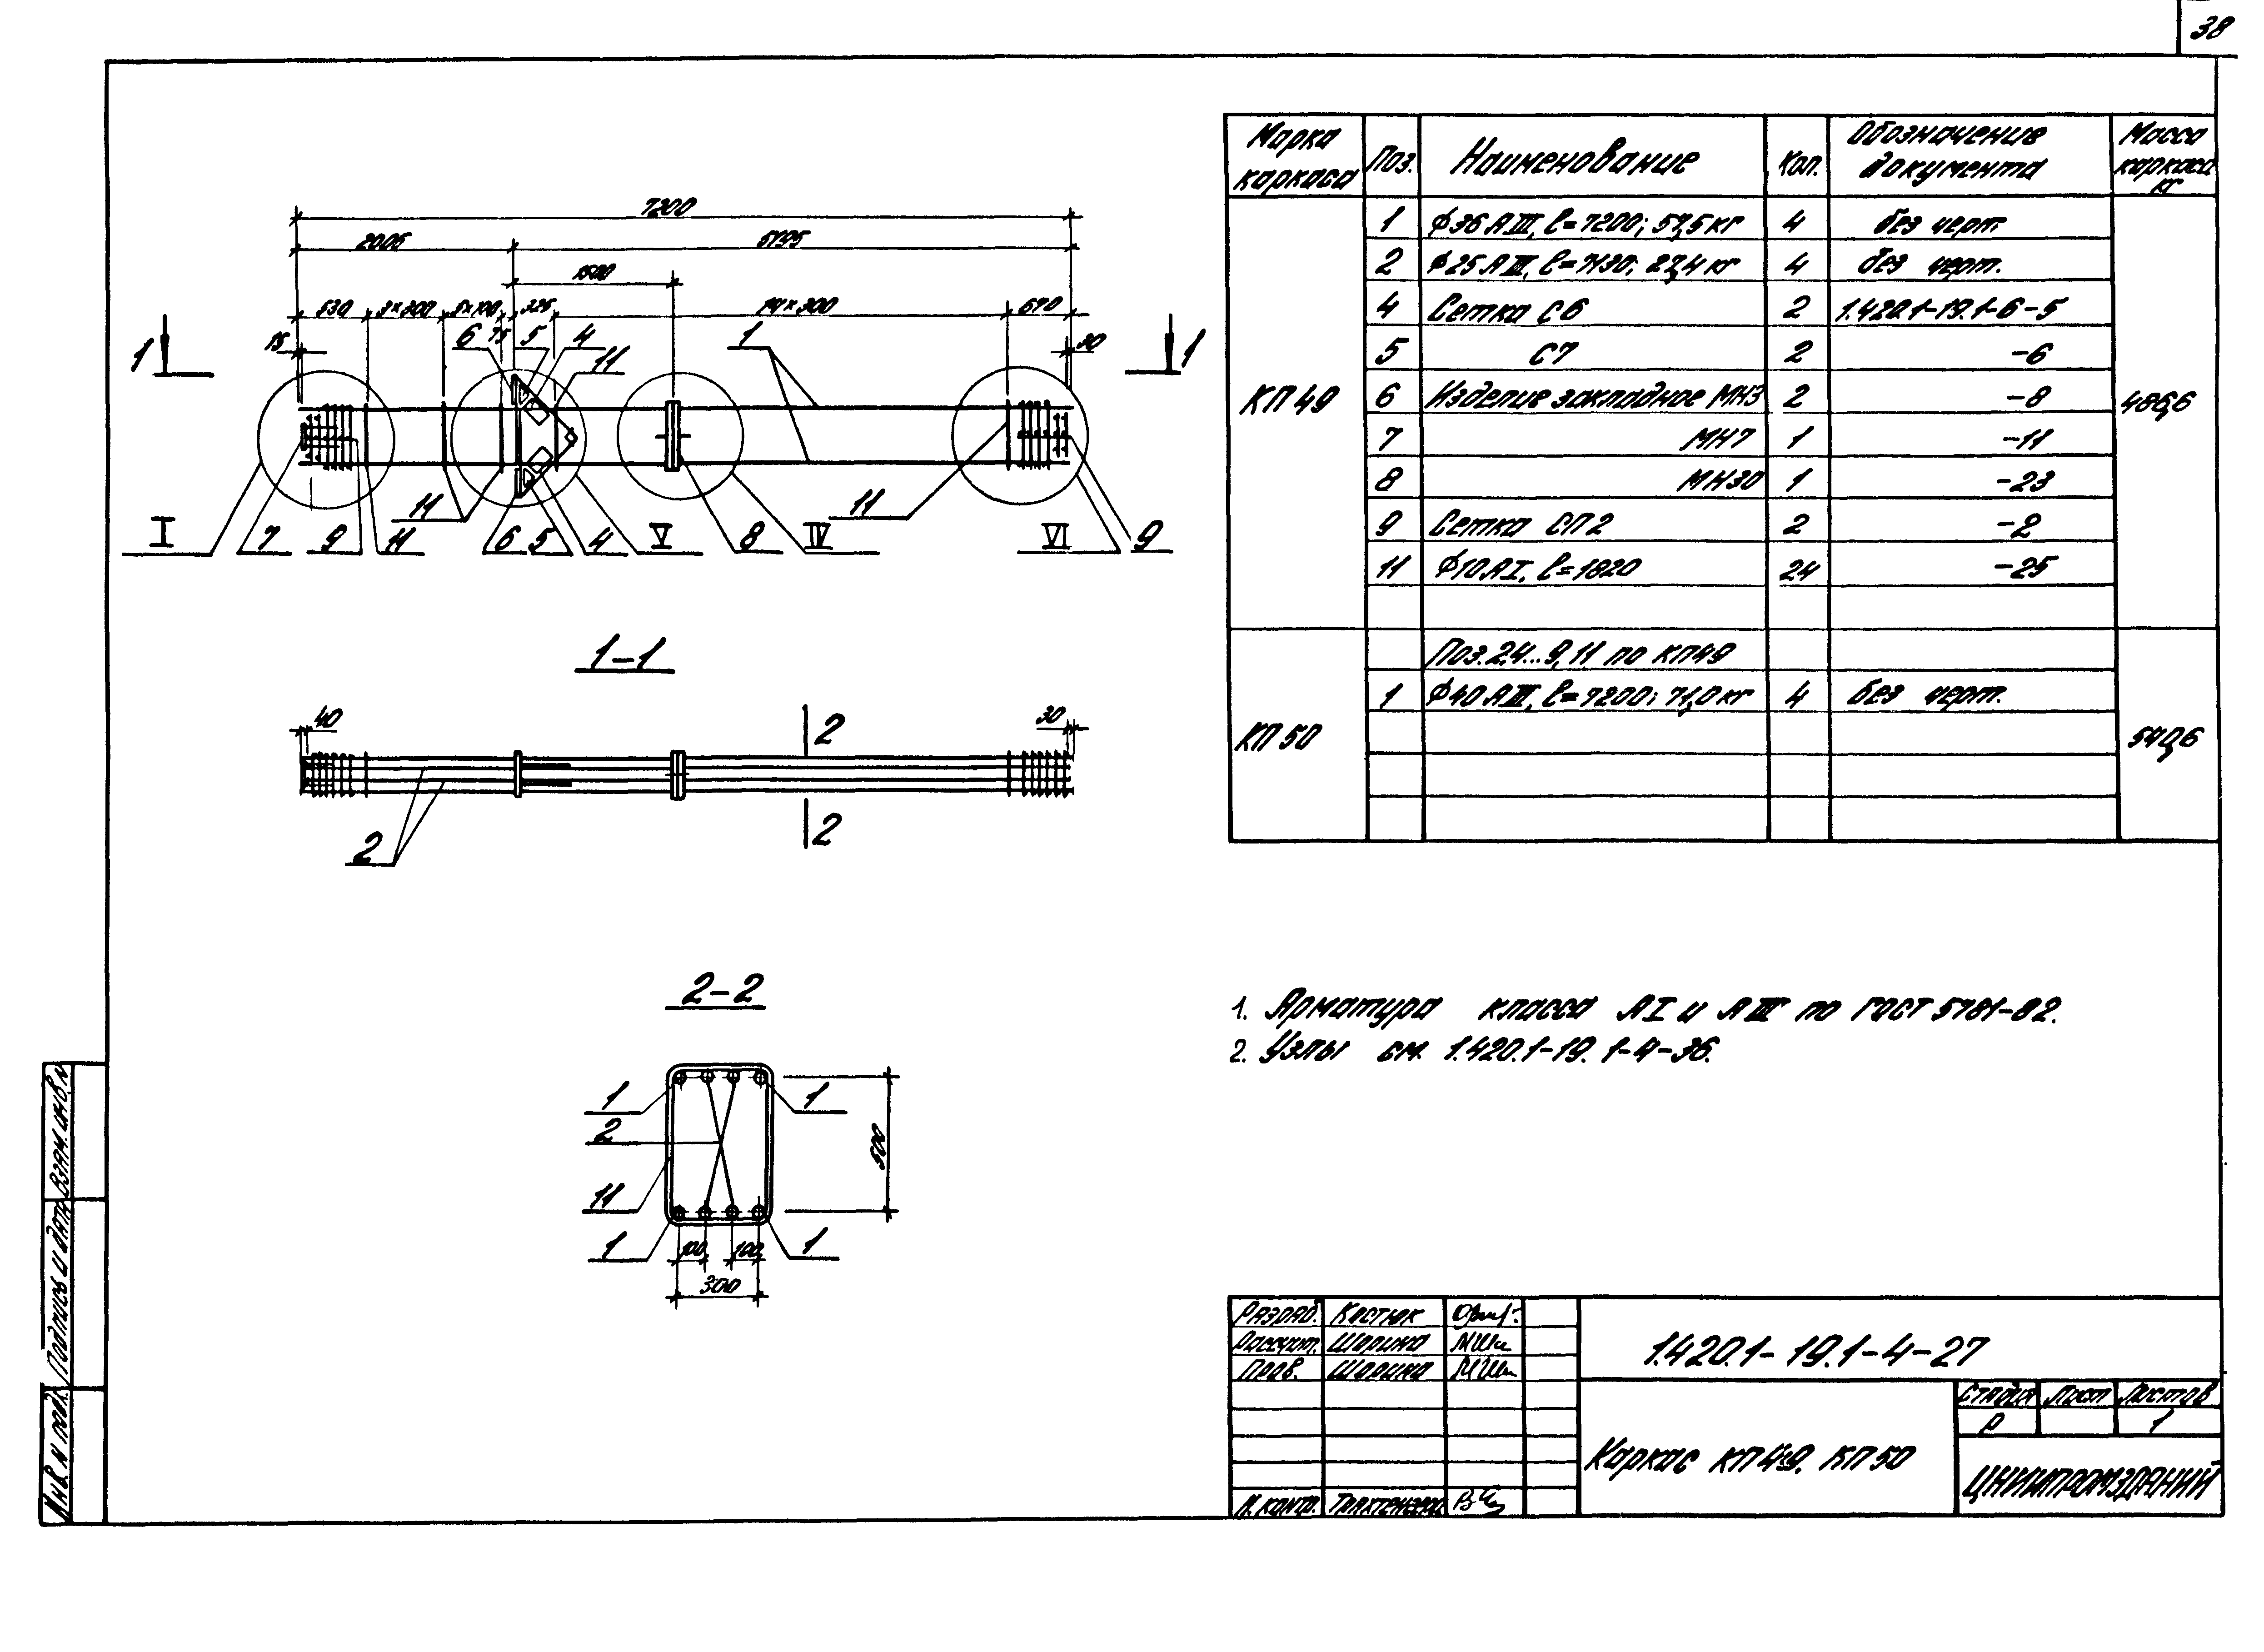 38
7200
2005 5195
1500
530 3×300 5×100 325 14×300 670
75
15 30
1 1
6 5 4 11 1
11 11
I 7 9 11 6 5 4 V 8 IV VI 9
1-1
40 30
2
2
2
2-2
1 1
2
11
1 1
500
100 100
300
Марка каркаса Поз. Наименование Кол. Обозначение документа Масса каркаса кг
КП 49 486,6
1 ϕ36 AIII, ℓ=7200; 57,5 кг 4 без черт.
2 ϕ25 AIII, ℓ=7130; 27,4 кг 4 без черт.
4 Сетка С6 2 1.420.1-19.1-6-5
5 С7 2 -6
6 Изделие закладное МН3 2 -8
7 МН7 1 -11
8 МН30 1 -23
9 Сетка СП2 2 -2
11 ϕ10 AI, ℓ=1820 24 -25
КП 50 540,6
Поз. 2,4...9,11 по КП49
1 ϕ40 AIII, ℓ=7200; 71,0 кг 4 без черт.
1. Арматура класса AI и AIII по ГОСТ 5781-82.
2. Узлы см. 1.420.1-19.1-4-36.
Разраб. Костюк
Рассчит. Шорина
Пров. Шорина
Н.контр.
1.420.1-19.1-4-27
Каркас КП49, КП50
Стадия Лист Листов
Р 1
ЦНИИПРОМЗДАНИЙ
Взам. инв. №
Подпись и дата
Инв. № подл.